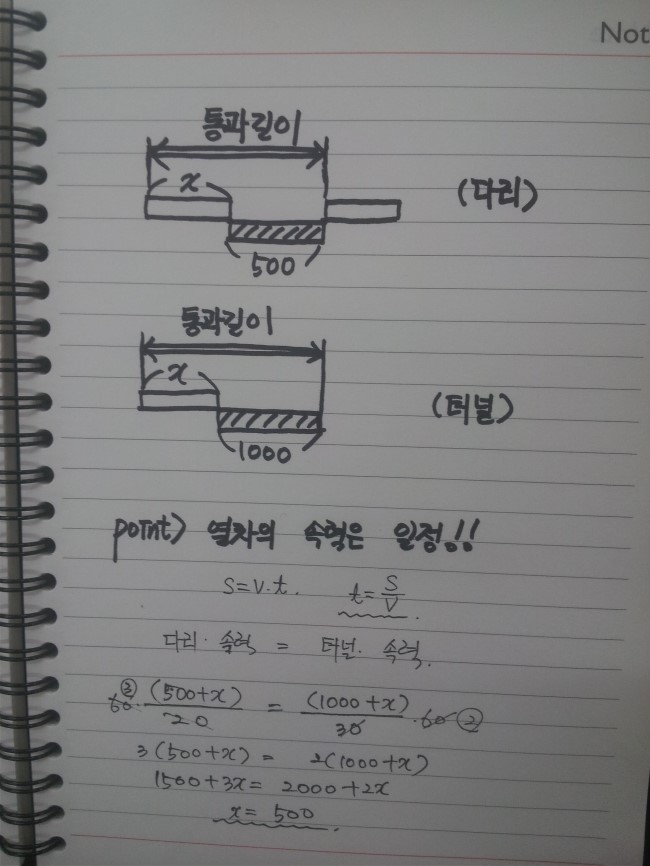 Not
통과길이
x
(다리)
500
통과길이
x
(터널)
1000
point) 열차의 속력은 일정!!
S=V·t. t=S/V.
다리·속력 = 터널·속력.
60·③ (500+x)/20 = (1000+x)/30 ·60 ②
3(500+x) = 2(1000+x)
1500+3x = 2000+2x
x = 500.